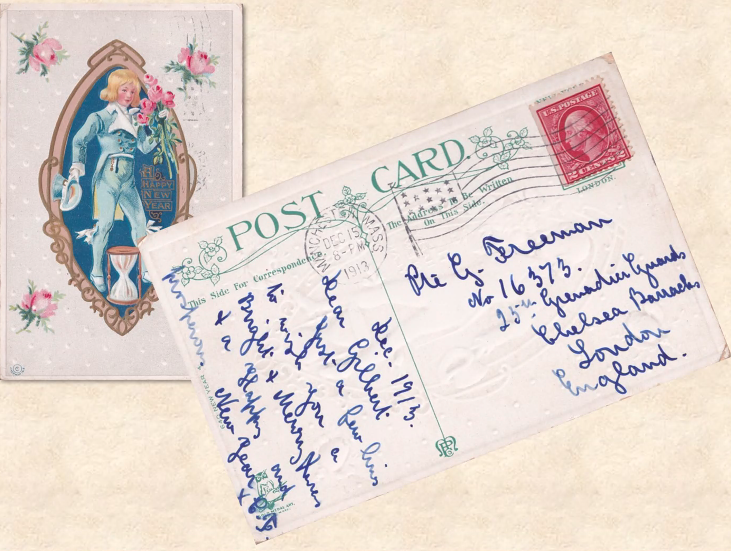 A
HAPPY
NEW
YEAR
POST CARD.
This Side For Correspondence
The Address To Be Written
On This Side.
U.S. POSTAGE
2 CENTS 2
LONDON.
MASS.
DEC 15
8-PM
1913
Dec. 1913.
Dear Gilbert
Just a few lines
to wish you a
Bright & Merry Xmas
& a Happy and
New Year
Pte G. Freeman
No 16373.
Grenadier Guards
Chelsea Barracks
London
England.